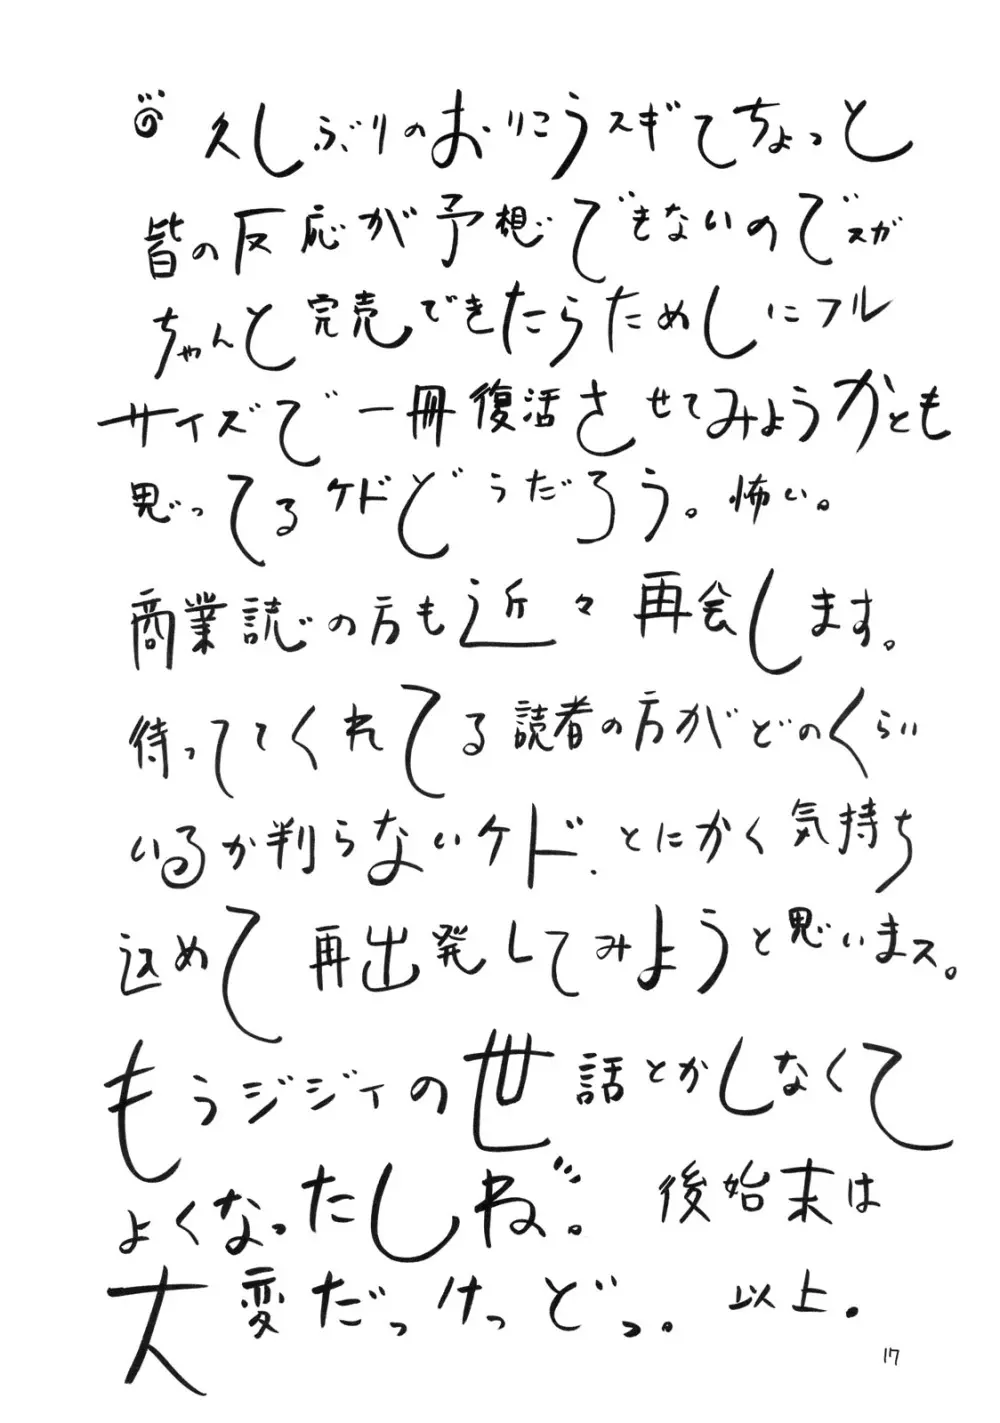 久しぶりのおりこうスギてちょっと
皆の反応が予想できもないのでスガ
ちゃんと完売できたらためしにフル
サイズで一冊復活させてみようかとも
思ってるケドどうだろう。怖い。
商業誌の方も近々再会します。
待っててくれてる読者の方がどのくらい
いるか判らないケド、とにかく気持ち
込めて再出発してみようと思いまス。
もうジジィの世話とかしなくて
よくなったしね。後始末は
大変だっけっどっ。以上。
17